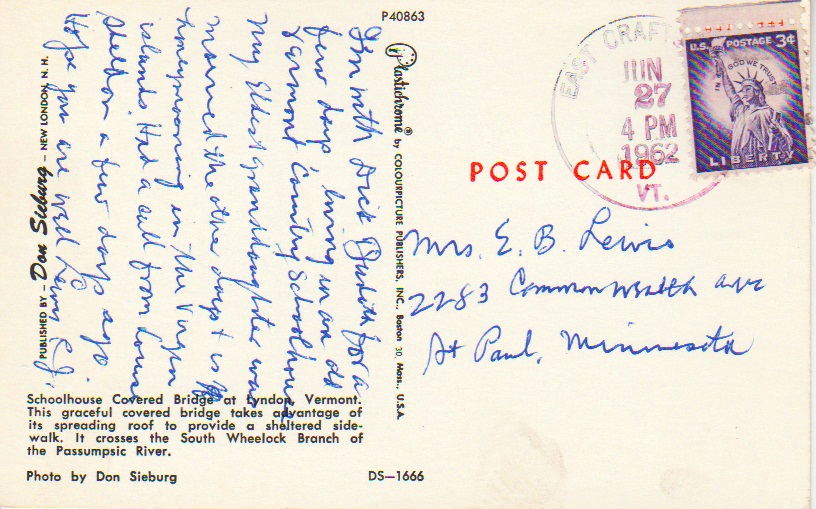 P40863
I'm with Dick & Judith for a
few days living in an old
Vermont Country Schoolhouse
My Eldest granddaughter was
married the other day & is
honeymooning in the Virgin
islands. Had a call from Louise
Shelton a few days ago.
Hope you are well Lewis E.J.
PUBLISHED BY – Don Sieburg – NEW LONDON, N. H.
Plastichrome® by COLOURPICTURE PUBLISHERS, INC., Boston 30, Mass., U.S.A.
Schoolhouse Covered Bridge at Lyndon, Vermont.
This graceful covered bridge takes advantage of
its spreading roof to provide a sheltered side-
walk. It crosses the South Wheelock Branch of
the Passumpsic River.
Photo by Don Sieburg
DS–1666
EAST CRAFTS
JUN
27
4 PM
1962
VT.
U.S. POSTAGE 3¢
IN GOD WE TRUST
LIBERTY
POST CARD
Mrs. E. B. Lewis
2283 Commonwealth ave
St Paul, Minnesota